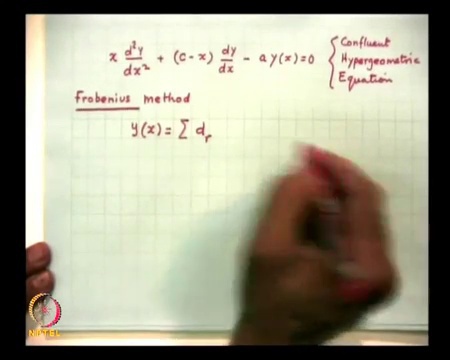 x d²y/dx² + (c-x) dy/dx - a y(x)=0 { Confluent
Hypergeometric
Equation
Frobenius method
y(x) = Σ dᵣ
NPTEL